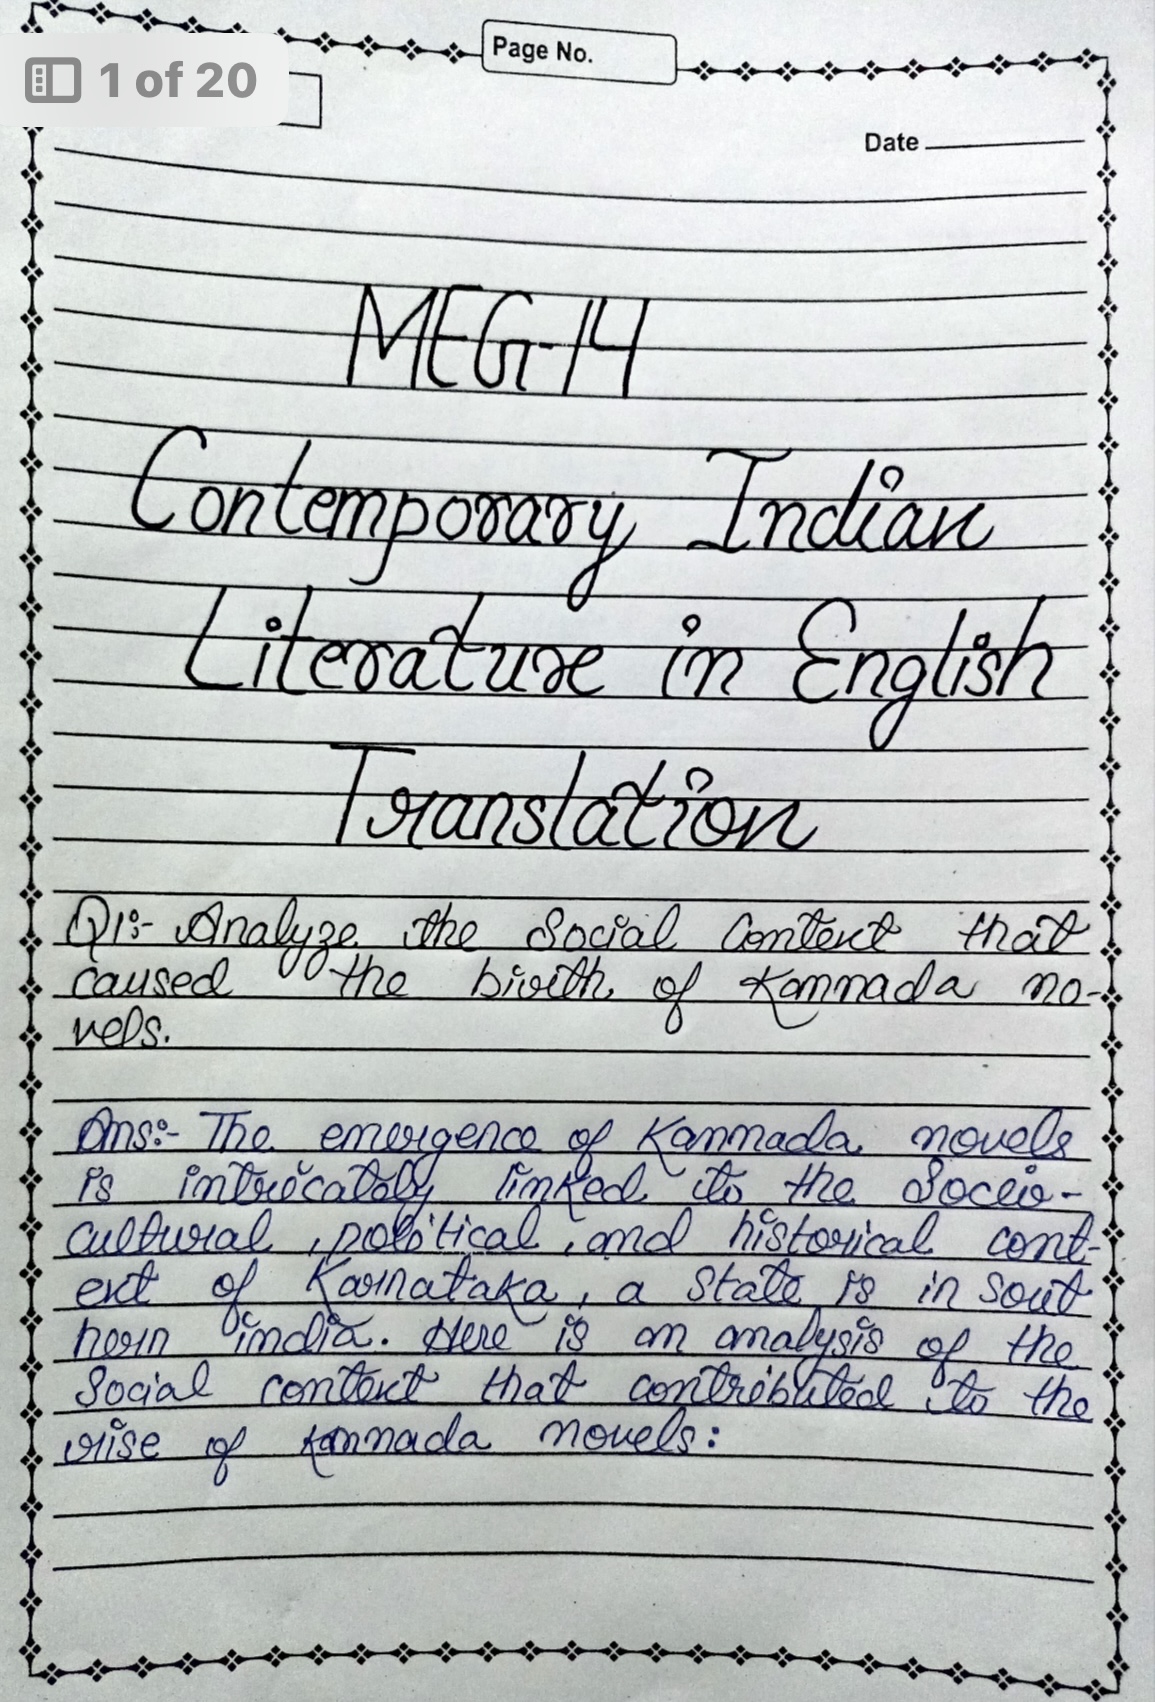 Page No.
1 of 20
Date
MEG-14
Contemporary Indian
Literature in English
Translation
Q1:- Analyze the Social Context that
caused the birth of Kannada no-
vels.
Ans:- The emergence of Kannada novels
is intricately linked to the Socio-
cultural, political, and historical cont-
ext of Karnataka, a State is in sout
hern india. Here is an analysis of the
Social context that contributed to the
rise of kannada novels: